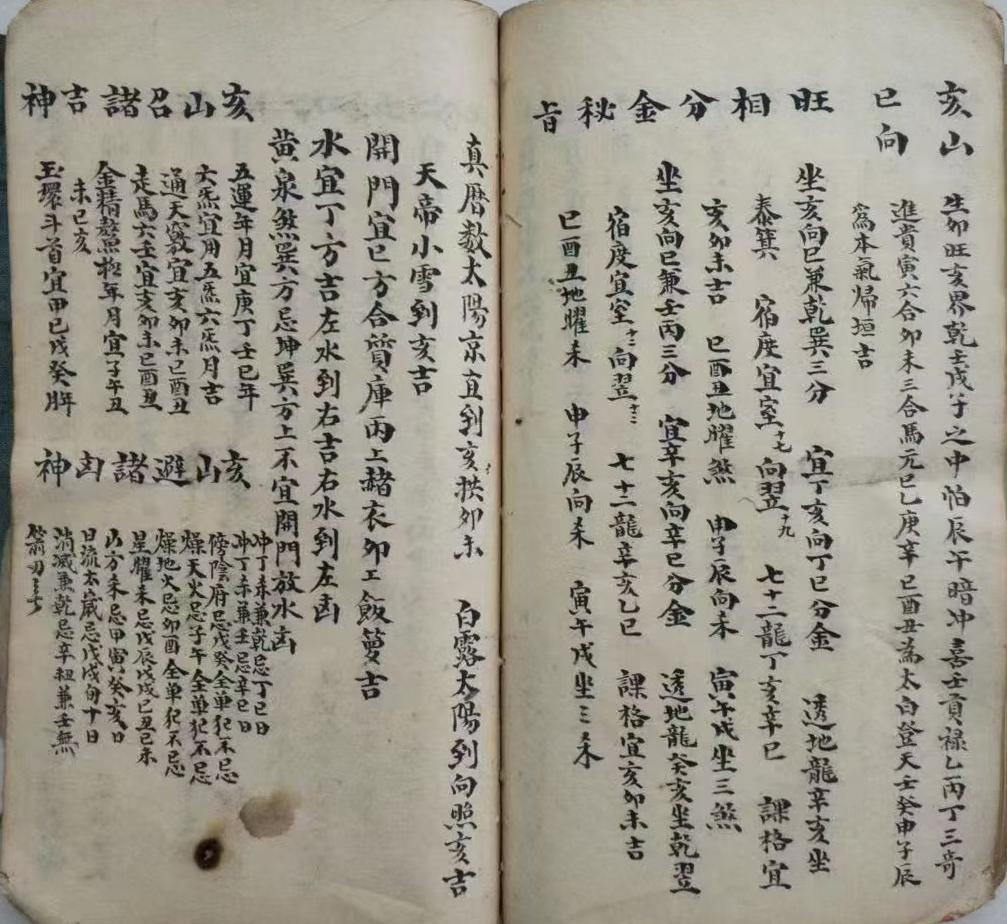 亥山巳向
生卯旺亥界乾壬戌子之中怕辰午暗冲喜壬貢祿乙丙丁三奇
進貴寅六合卯未三合馬元巳乙庚辛巳酉丑為太白登天壬癸申子辰
為本氣歸垣吉
旺相分金秘旨
坐亥向巳兼乾巽三分 宜丁亥向丁巳分金 透地龍辛亥坐
泰箕 宿度宜室十七向翌十九 七十二龍丁亥辛巳 課格宜
亥卯未吉 巳酉丑地曜煞 申子辰向未 寅午戌坐三煞
坐亥向巳兼壬丙三分 宜辛亥向辛巳分金 透地龍癸亥坐乾翌
宿度宜室十二向翌十三 七十二龍辛亥乙巳 課格宜亥卯未吉
巳酉丑地曜未 申子辰向未 寅午戌坐三未
真曆数太陽京直到亥拱卯未 白露太陽到向照亥吉
天帝小雪到亥吉
開門宜巳方合質庫丙上赭衣卯工飯籮吉
水宜丁方吉左水到右吉右水到左凶
黄泉煞巽方忌坤巽方上不宜開門放水凶
亥山召諸吉神
五運年月宜庚丁壬巳年
六炁宜用五炁六炁月吉
通天竅宜亥卯未巳酉丑
走馬六壬宜亥卯未巳酉丑
金精鰲極年月宜子午丑
未巳亥
玉環斗首宜甲巳戊癸年
亥山避諸凶神
冲丁未兼乾忌丁巳日
冲丁未兼壬忌辛巳日
傍陰府忌戊癸全单犯不忌
燥天火忌子午全单犯不忌
燥地火忌卯酉全单犯不忌
星曜未忌戊辰戊戌巳丑巳未
山方未忌甲寅癸亥日
日流太歲忌戊戌旬十日
消滅兼乾忌辛紐兼壬無
箭刃